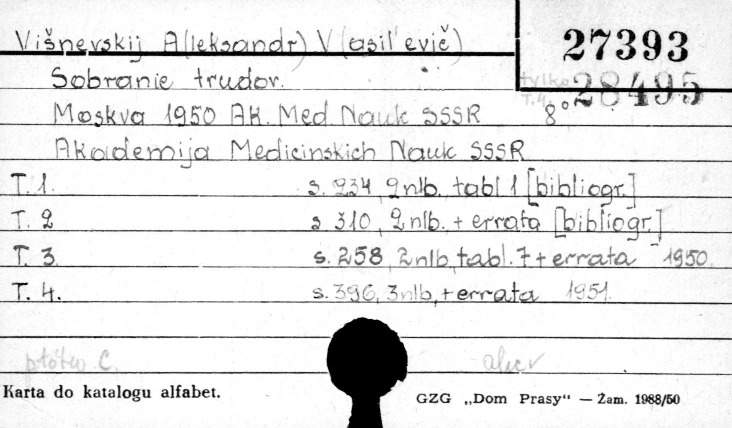 Višnevskij A(leksandr) V(asil'evič) 27393
Sobranie trudov. tylko T.4. 28495
Moskva 1950 Ak. Med. Nauk SSSR 8°
Akademija Medicinskich Nauk SSSR
T. 1. s. 234, 2 nlb. tabl 1 [bibliogr.]
T. 2 s 310, 2 nlb. + errata [bibliogr.]
T. 3. s. 258, 2 nlb, tabl. 7 + errata 1950.
T. 4. s. 396, 3 nlb, + errata 1951.
płótno C.
Karta do katalogu alfabet. GZG „Dom Prasy" — Zam. 1988/50